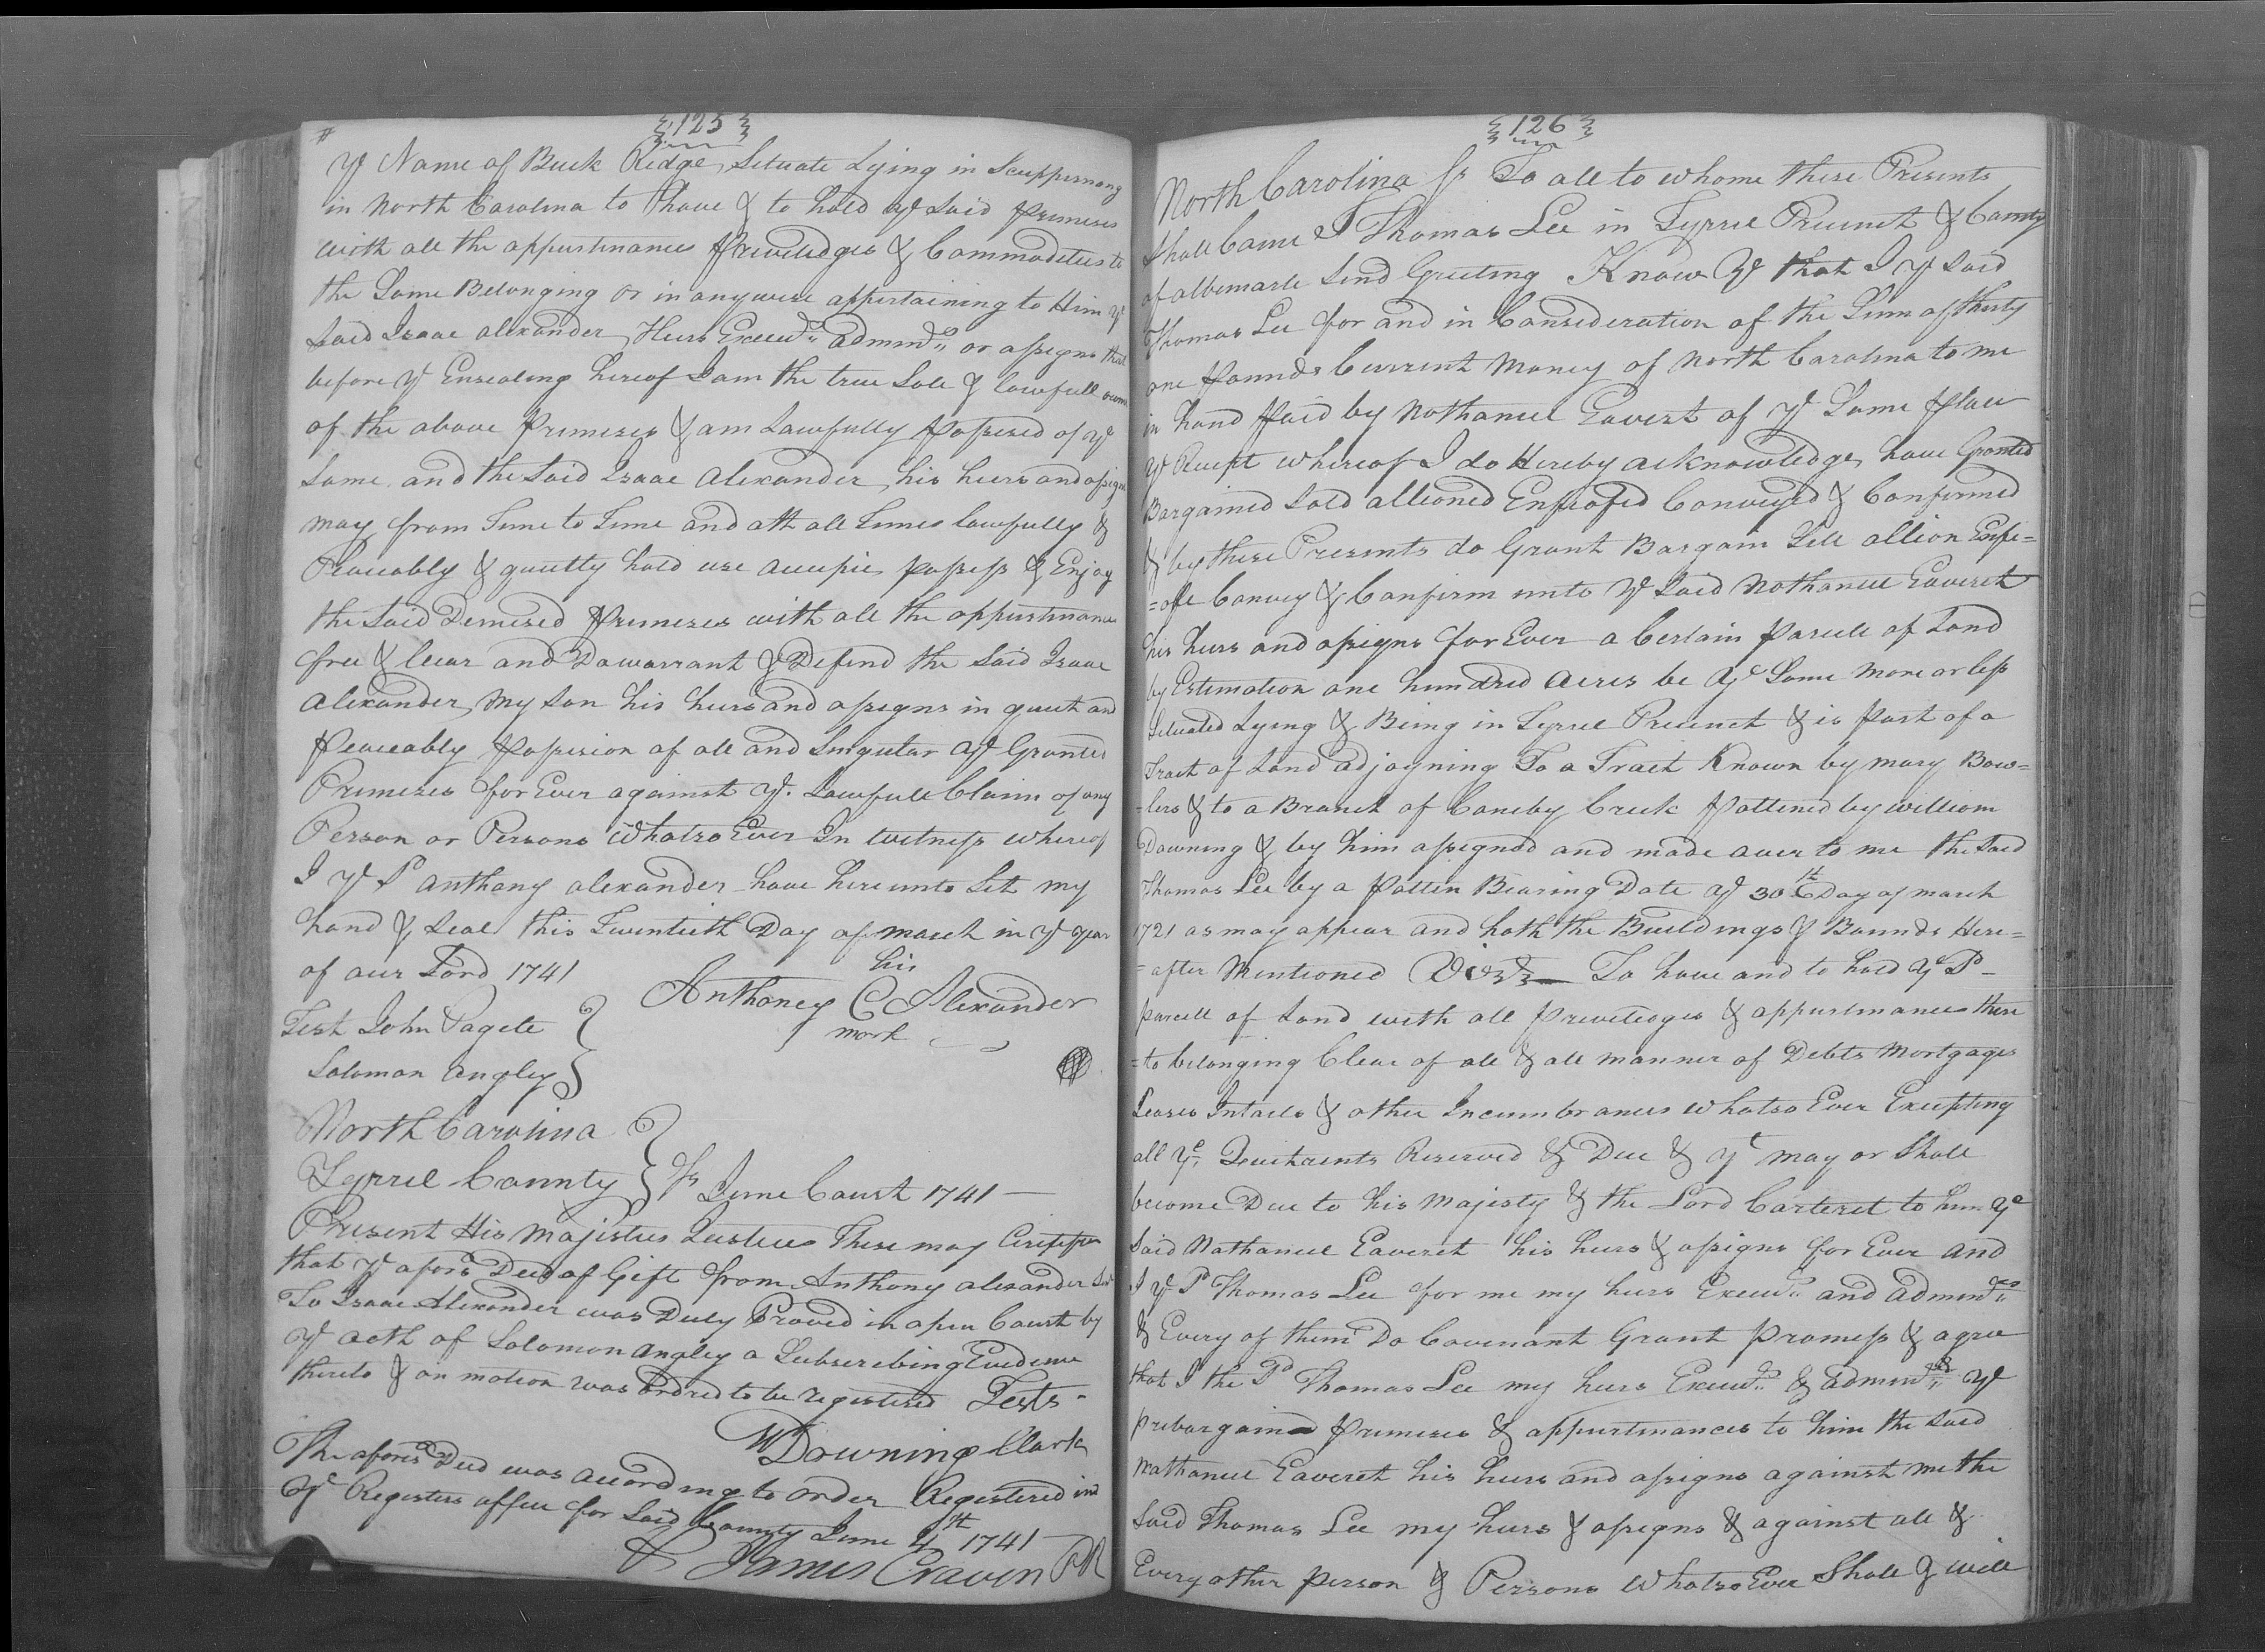 125
#
ye Name of Buck Ridge, Situate Lying in Scuppernong
in North Carolina to have & to hold ye Said Premeses
with all the appurtinances Priviledges & Commodities to
the Same Belonging or in anywise appertaining to Him ye
Said Isaac alexander, Heirs Execurs admindrs or assigns that
before ye Ensealing hereof I am the true Sole & lawfull owner
of the above Premeses & am Lawfully Possesed of ye
Same and the Said Isaac Alexander, his heirs and assigns
may from Time to Time and att all Times lawfully &
Peaceably & quietly hold use accupie possess & Enjoy
the Said Demised Premeses with all the appurtinances
free & Clear and Dowarrant & Defend the Said Isaac
Alexander, my Son his heirs and assigns in quiet and
Peaceably Possesion of all and Singular ye Granted
Premeses for Ever against ye Lawfull Claim of any
Person or Persons Whatso Ever In witness whereof
I ye Sd anthony alexander have hereunto Set my
hand & Seal this Twentieth Day of march in ye year
of our Lord 1741
his
Anthoney C Alexander
mark
Test John Pagete
Solomon Angley
North Carolina
Tyrrel County Ss June Court 1741
Present His Majesties Justices These may Certifie
that ye aforsd Deed of Gift from Anthony alexander Senr
To Isaac Alexander was Duly Proved in open Court by
ye aoth of Solomon Angley a Subscribing Evidence
thereto & on motion was ordred to be registered Tests
W Downing Clark
The aforesd Deed was according to order Registered in
ye Registers office for Said County June 4th 1741
P James Craven PR
126
North Carolina Ss To all to whome these Presents
Shall Came I Thomas Lee in Tyrrel Precinct & County
of albemarle Send Greeting Know Ye that I ye Said
Thomas Lee for and in Consideration of the Sum of thirty
one Pounds Current Money of North Carolina to me
in hand Paid by Nathaniel Everet of ye Same Place
ye Receipt whereof I do Hereby acknowledge, have Granted
Bargained Sold alleoned Enfeofed Conveyed & Confirmed
& by these Presents do Grant Bargain Sell allion Enfe=
=ofe Convey & Confirm unto ye Said Nathaniel Eaveret
his heirs and assigns for Ever a Certain Parcell of Land
by Estimation one hundred Acres be ye Same more or less
Situated Lying & Being in Tyrrel Precinct & is Part of a
Tract of Land adjoyning To a Tract Known by mary Bow=
-lers & to a Branch of Caneby Creek Pattened by william
Downing & by him assigned and made over to me the Said
Thomas Lee by a Patten Bearing Date ye 30th Day of march
1721 as may appear and hath the Buildings & Bounds Here=
=after Mentioned Vizt To have and to hold ye Sd
parcell of Land with all Priviledges & appurtinances there
=to belonging Clear of all & all manner of Debts Mortgages
Leases Intails & other Incumbrances whatso Ever Excepting
all ye Quitrents Reserved & Due & yt may or Shall
become Due to his Majesty & the Lord Carteret to him ye
Said Nathaniel Eaveret his heirs & assigns for Ever and
I ye Sd Thomas Lee for me my heirs Execurs and admindrs
& Every of them Do Covenant Grant Promess & agree
that I the Sd Thomas Lee my heirs Execurs & admindrs ye
prebargained Premeses & appurtinances to him the Said
Nathaniel Eaveret his heirs and assigns against me the
Said Thomas Lee my heirs & assigns & against all &
Every other Person & Persons Whatso Ever Shall & will